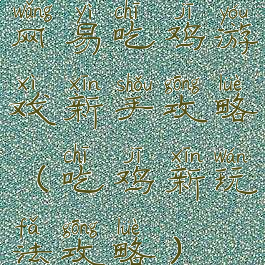 wǎng yì chī jī yóu
网易吃鸡游
xì xīn shǒu gōng lüè
戏新手攻略
chī jī xīn wán
（吃鸡新玩
fǎ gōng lüè
法攻略）